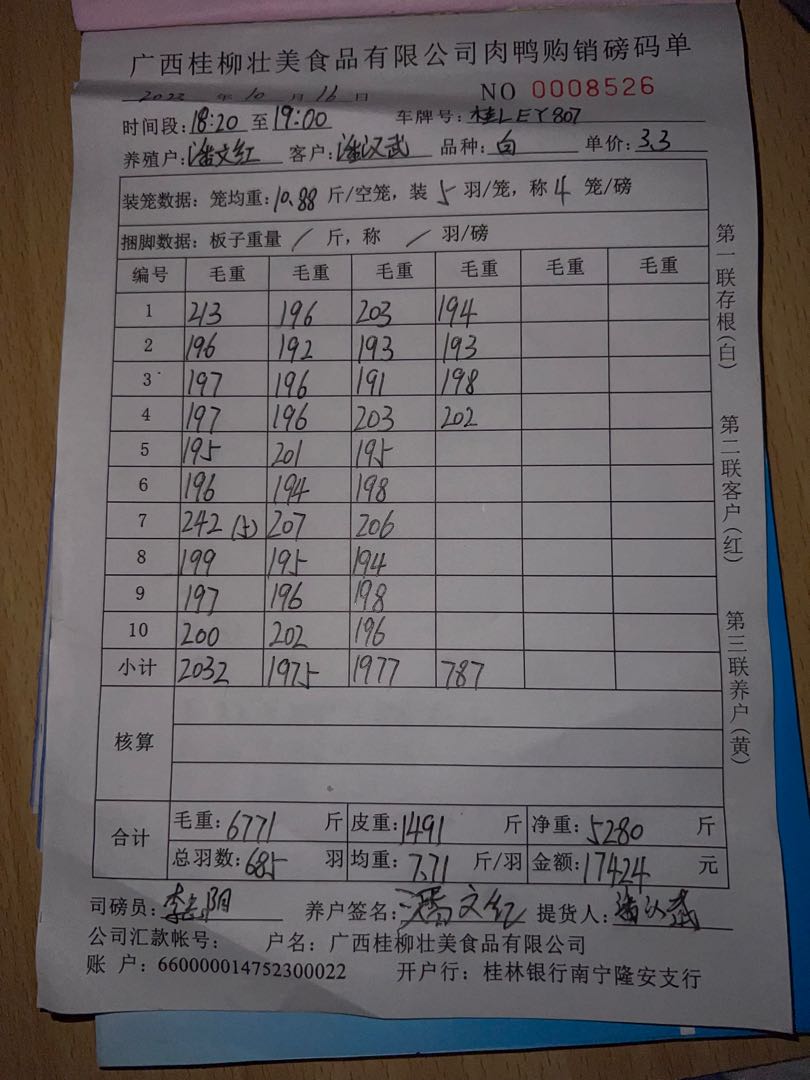 广西桂柳壮美食品有限公司肉鸭购销磅码单
2023 年 10 月 16 日 NO 0008526
时间段: 18:20 至 19:00 车牌号: 桂LEY807
养殖户: 潘文红 客户: 潘汉武 品种: 白 单价: 3.3
装笼数据: 笼均重: 10.88 斤/空笼, 装 5 羽/笼, 称 4 笼/磅
捆脚数据: 板子重量 / 斤, 称 / 羽/磅
编号 毛重 毛重 毛重 毛重 毛重 毛重
1 213 196 203 194
2 196 192 193 193
3 197 196 191 198
4 197 196 203 202
5 195 201 195
6 196 194 198
7 242 (5) 207 206
8 199 195 194
9 197 196 198
10 200 202 196
小计 2032 1975 1977 787
核算
合计 毛重: 6771 斤 皮重: 1491 斤 净重: 5280 斤
总羽数: 685 羽 均重: 7.71 斤/羽 金额: 17424 元
司磅员: 养户签名: 潘文红 提货人: 潘汉武
公司汇款帐号: 户名: 广西桂柳壮美食品有限公司
账 户: 660000014752300022 开户行: 桂林银行南宁隆安支行
第一联存根(白)
第二联客户(红)
第三联养户(黄)